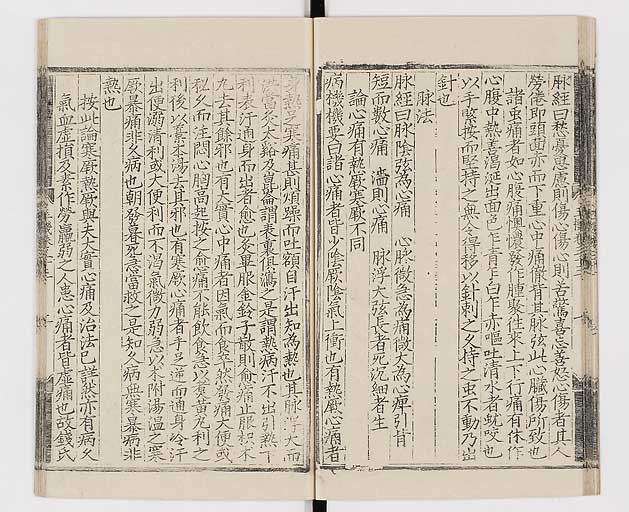 脉經曰愁憂思慮則傷心傷心則苦驚喜忘善怒心傷者其人
勞倦即頭面赤而下重心中痛徹背其脉弦此心臟傷所致也
諸虫痛者如心腹痛懊憹發作腫聚往來上下行痛有休作
心腹中熱善渴涎出面色乍青乍白乍赤嘔吐清水者蛟咬也
以手緊按而堅持之無令得移以針刺之久持之虫不動乃出
針也
脉法
脉經曰脉陰弦為心痛 心脉微急為痛微大為心痺引背
短而數心痛 濇則心痛 脉浮大弦長者死沉細者生
論心痛有熱厥寒厥不同
病機機要曰諸心痛者皆少陰厥陰氣上衝也有熱厥心痛者
身熱足寒痛甚則煩躁而吐額自汗出知為熱也其脉浮大而
洪當灸太谿及崑崙謂表裏俱瀉之是謂熱病汗不出引熱下
利表汗通身而出者愈也灸畢服金鈴子散則愈痛止服枳朮
丸去其餘邪也有大實心中痛者因氣而食卒然發痛大便或
秘久而注悶心胸高起按之愈痛不能飲食急以煑黃丸利之
利後以藁本湯去其邪也有寒厥心痛者手足逆而通身冷汗
出便溺清利或大便利而不渴氣微力弱急以朮附湯溫之寒
厥暴痛非久病也朝發暮死急當救之是知久病無寒暴病非
熱也
按此論寒厥熱厥與夫大實心痛及治法已詳然亦有病久
氣血虛損及素作勞羸弱之人患心痛者皆虛痛也故錢氏